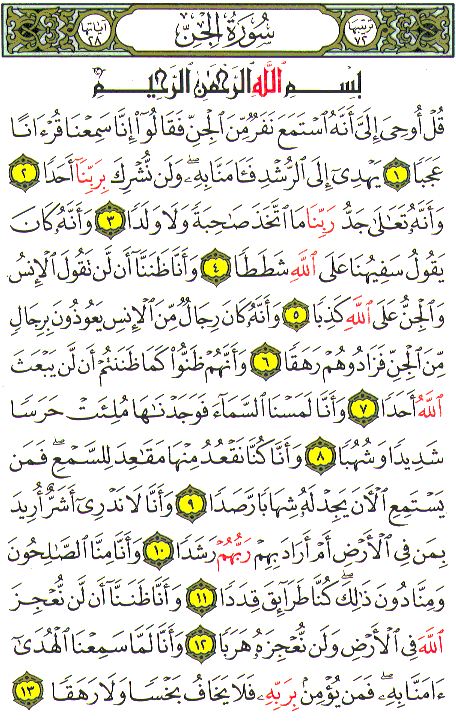 ترتيبها ٧٢ سُورَةُ الجِنّ آياتها ٢٨
بِسْمِ اللَّهِ الرَّحْمَٰنِ الرَّحِيمِ
قُلْ أُوحِىَ إِلَىَّ أَنَّهُ ٱسْتَمَعَ نَفَرٌ مِّنَ ٱلْجِنِّ فَقَالُوٓا۟ إِنَّا سَمِعْنَا قُرْءَانًا
عَجَبًا ١ يَهْدِىٓ إِلَى ٱلرُّشْدِ فَـَٔامَنَّا بِهِۦ ۖ وَلَن نُّشْرِكَ بِرَبِّنَآ أَحَدًا ٢
وَأَنَّهُۥ تَعَٰلَىٰ جَدُّ رَبِّنَا مَا ٱتَّخَذَ صَٰحِبَةً وَلَا وَلَدًا ٣ وَأَنَّهُۥ كَانَ
يَقُولُ سَفِيهُنَا عَلَى ٱللَّهِ شَطَطًا ٤ وَأَنَّا ظَنَنَّآ أَن لَّن تَقُولَ ٱلْإِنسُ
وَٱلْجِنُّ عَلَى ٱللَّهِ كَذِبًا ٥ وَأَنَّهُۥ كَانَ رِجَالٌ مِّنَ ٱلْإِنسِ يَعُوذُونَ بِرِجَالٍ
مِّنَ ٱلْجِنِّ فَزَادُوهُمْ رَهَقًا ٦ وَأَنَّهُمْ ظَنُّوا۟ كَمَا ظَنَنتُمْ أَن لَّن يَبْعَثَ
ٱللَّهُ أَحَدًا ٧ وَأَنَّا لَمَسْنَا ٱلسَّمَآءَ فَوَجَدْنَٰهَا مُلِئَتْ حَرَسًا
شَدِيدًا وَشُهُبًا ٨ وَأَنَّا كُنَّا نَقْعُدُ مِنْهَا مَقَٰعِدَ لِلسَّمْعِ ۖ فَمَن
يَسْتَمِعِ ٱلْـَٔانَ يَجِدْ لَهُۥ شِهَابًا رَّصَدًا ٩ وَأَنَّا لَا نَدْرِىٓ أَشَرٌّ أُرِيدَ
بِمَن فِى ٱلْأَرْضِ أَمْ أَرَادَ بِهِمْ رَبُّهُمْ رَشَدًا ١٠ وَأَنَّا مِنَّا ٱلصَّٰلِحُونَ
وَمِنَّا دُونَ ذَٰلِكَ ۖ كُنَّا طَرَآئِقَ قِدَدًا ١١ وَأَنَّا ظَنَنَّآ أَن لَّن نُّعْجِزَ
ٱللَّهَ فِى ٱلْأَرْضِ وَلَن نُّعْجِزَهُۥ هَرَبًا ١٢ وَأَنَّا لَمَّا سَمِعْنَا ٱلْهُدَىٰٓ
ءَامَنَّا بِهِۦ ۖ فَمَن يُؤْمِنۢ بِرَبِّهِۦ فَلَا يَخَافُ بَخْسًا وَلَا رَهَقًا ١٣